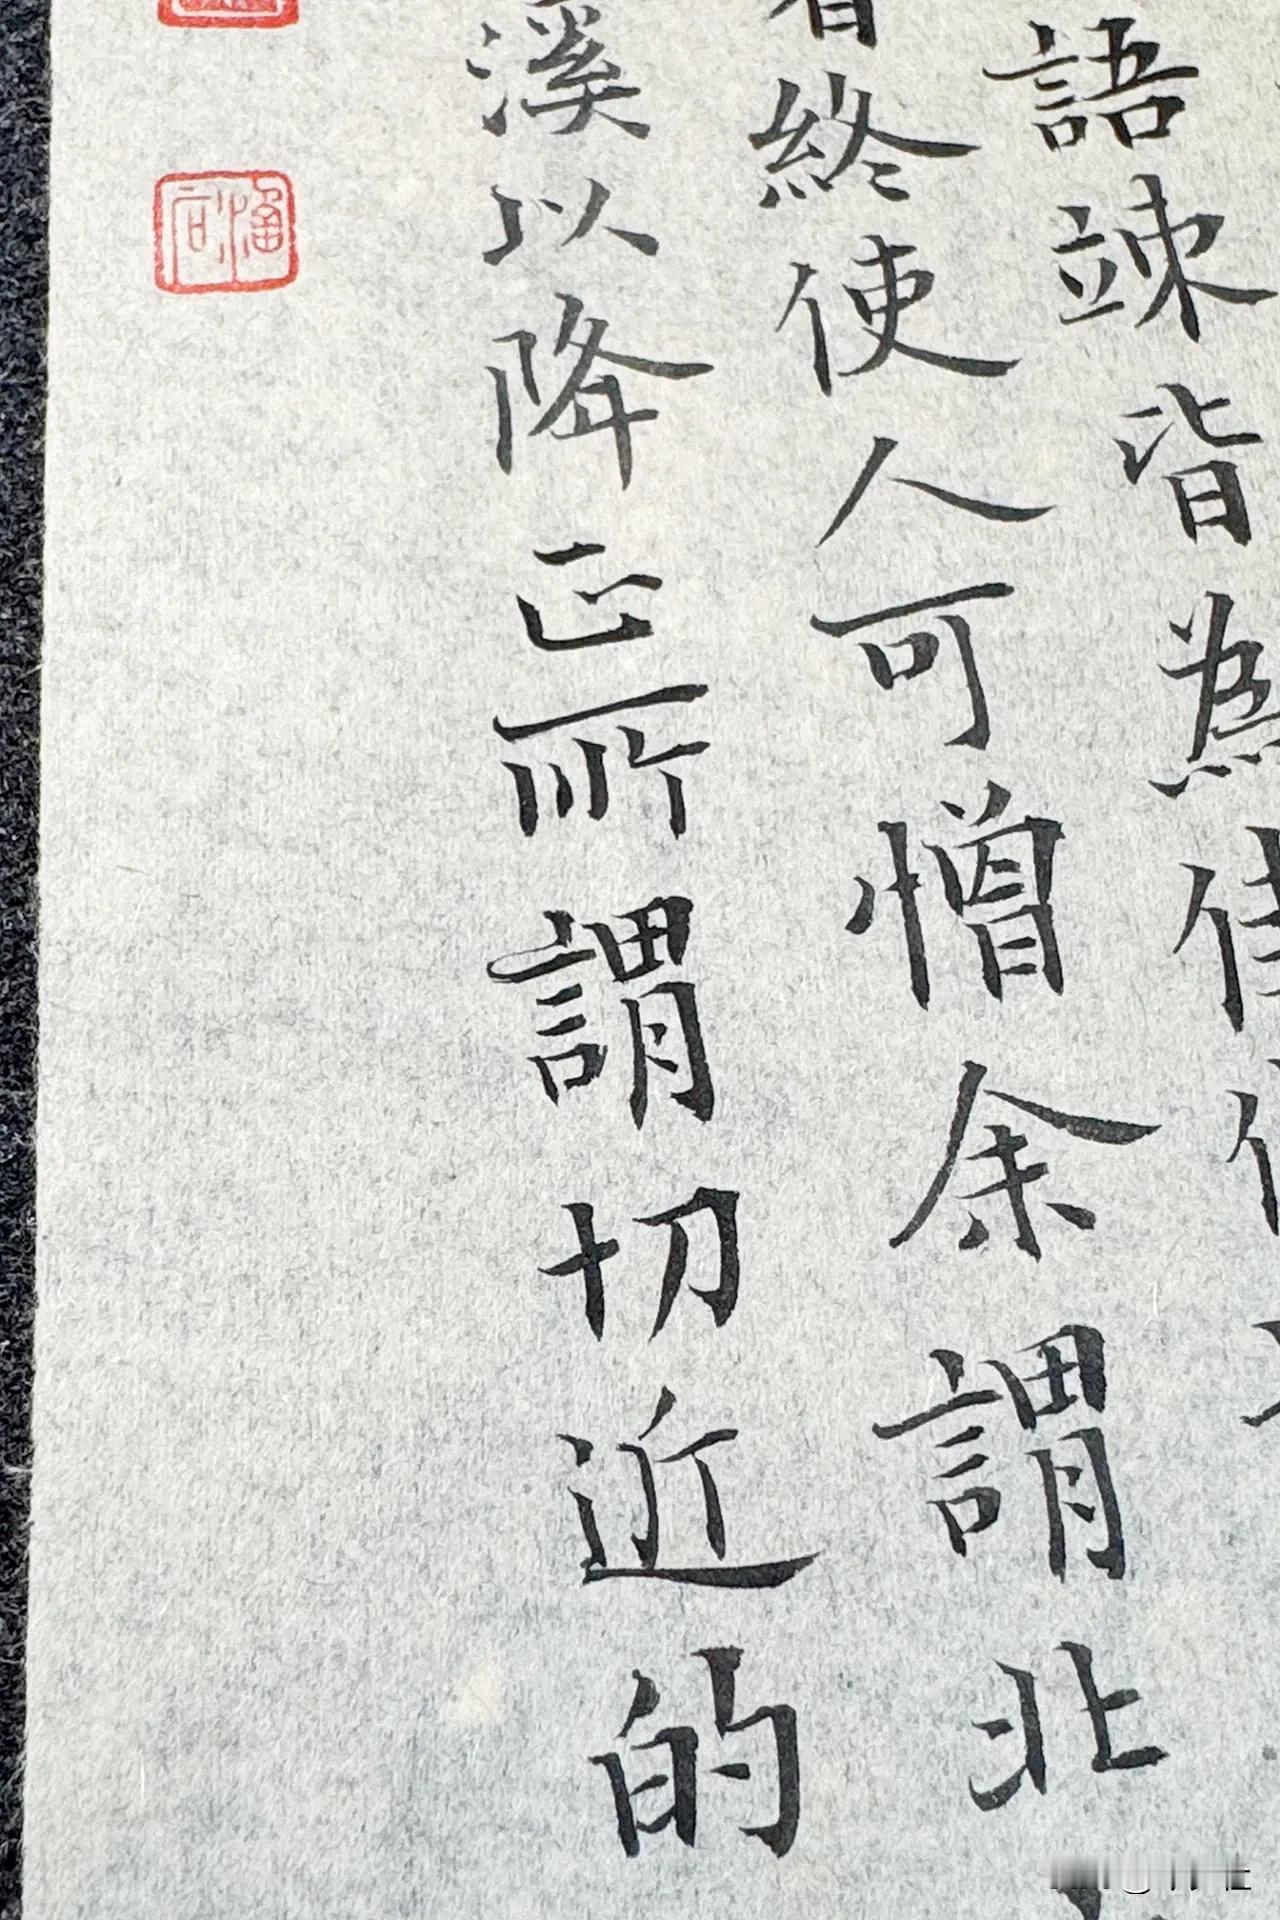 語竦皆為佳
者終使人可憎余謂北
溪以降正所謂切近的